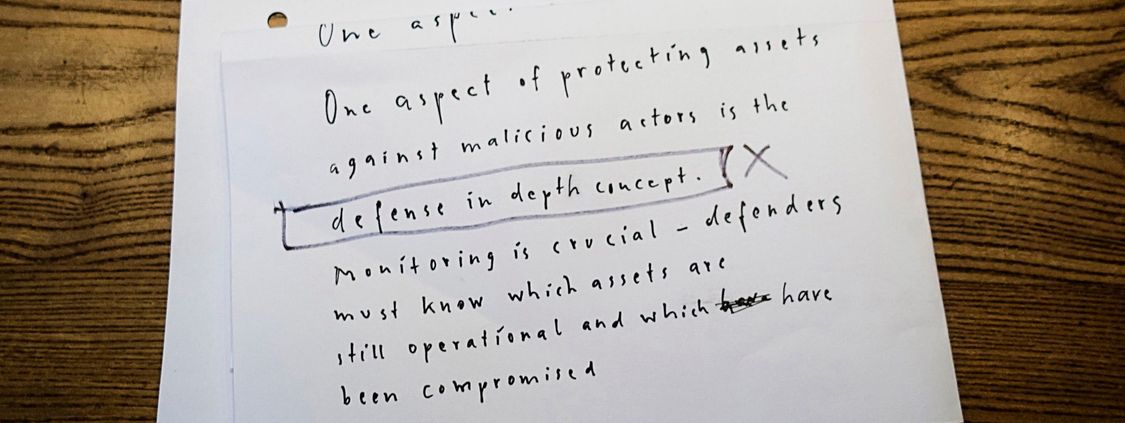 One aspec
One aspect of protecting assets
against malicious actors is the
defense in depth concept. X
Monitoring is crucial - defenders
must know which assets are
still operational and which have
been compromised